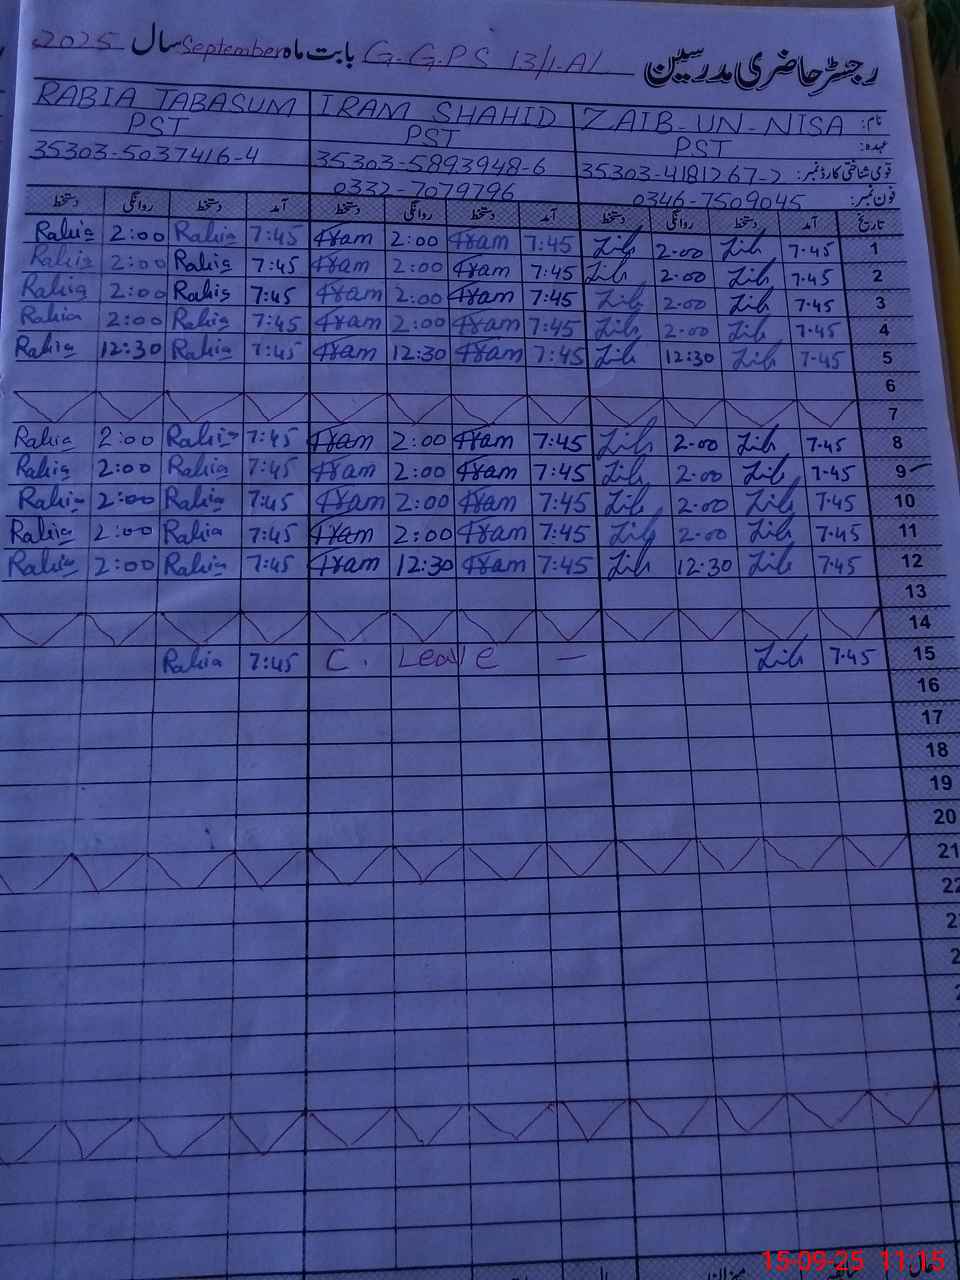 رجسٹر حاضری مدرسین G.G.P.S 13/1.A/ بابت ماہ September سال 2025
نام: ZAIB-UN-NISA IRAM SHAHID RABIA TABASUM
عہدہ: PST PST PST
قومی شناختی کارڈ نمبر: 35303-4181267-2 35303-5893948-6 35303-5037416-4
فون نمبر: 0346-7509045 0332-7079796
تاریخ آمد دستخط روانگی دستخط آمد دستخط روانگی دستخط آمد دستخط روانگی دستخط
1 7.45 2.00 7:45 Iram 2:00 Iram 7:45 Rabia 2:00 Rabia
2 7.45 2.00 7:45 Iram 2:00 Iram 7:45 Rabia 2:00 Rabia
3 7.45 2.00 7:45 Iram 2:00 Iram 7:45 Rabia 2:00 Rabia
4 7.45 2.00 7:45 Iram 2:00 Iram 7:45 Rabia 2:00 Rabia
5 7.45 12:30 7:45 Iram 12:30 Iram 7:45 Rabia 12:30 Rabia
6
7
8 7.45 2.00 7:45 Iram 2:00 Iram 7:45 Rabia 2:00 Rabia
9 7.45 2.00 7:45 Iram 2:00 Iram 7:45 Rabia 2:00 Rabia
10 7.45 2.00 7:45 Iram 2:00 Iram 7:45 Rabia 2:00 Rabia
11 7.45 2.00 7:45 Iram 2:00 Iram 7:45 Rabia 2:00 Rabia
12 7.45 12.30 7:45 Iram 12:30 Iram 7:45 Rabia 2:00 Rabia
13
14
15 7.45 — C. Leave 7:45 Rabia
16
17
18
19
20
21
22
15-09-25 11:15